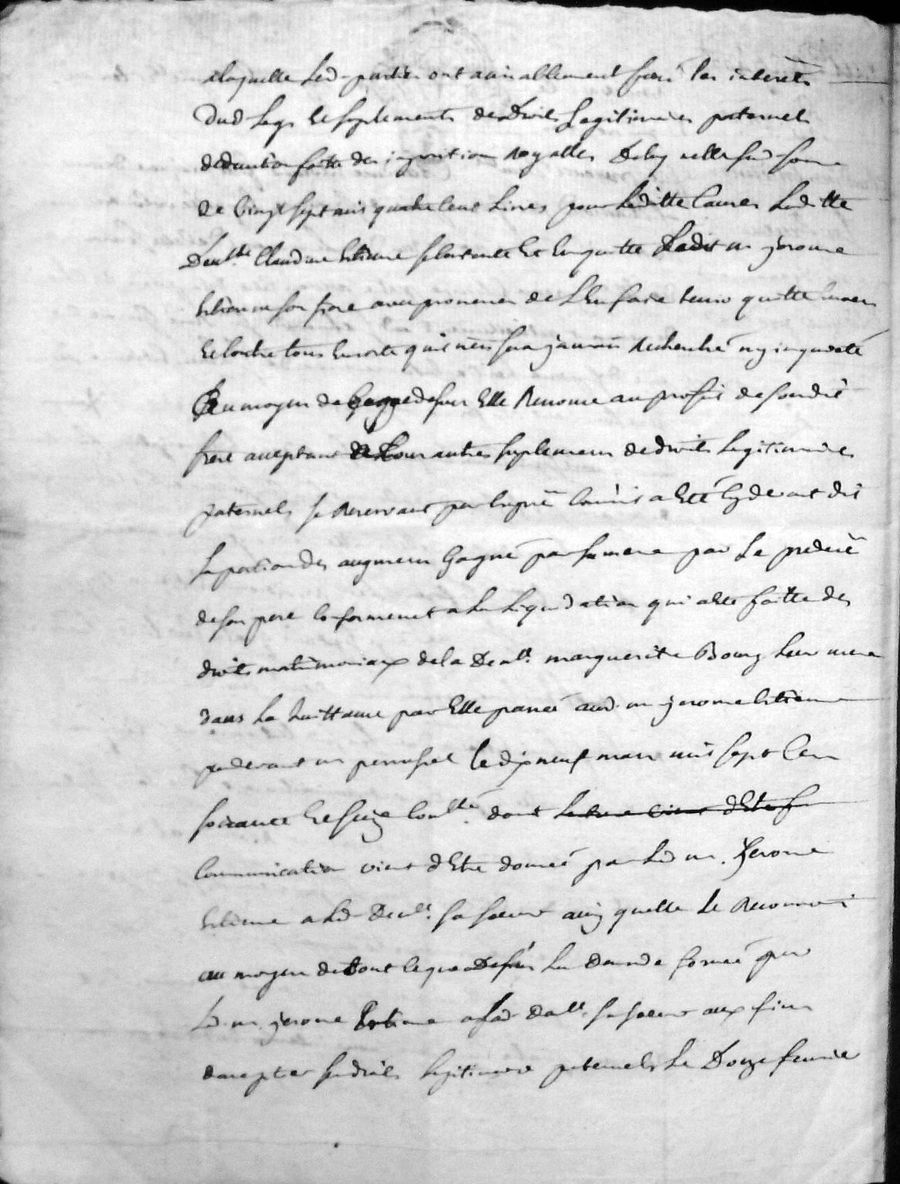 alaquelle led. parties ont amiallement fixé les interets
dud legs et suplements de droits legitimaires paternels
deduction faite des imposition royalles de lay celle sud somme
de vingt sept mil quatre cent livres pour laditte cause laditte
demlle Claudine Etienne se contante et en quitte ledit m jerome
Etienne son frere avec promesse de l'en faire tenir quitte envers
et contre tous en sorte qu'il n'en sera jamais recherché ny inquieté
et au moyen de ce que dessus elle renonce au profit de sondit
frere acceptant et tout autres suplement de droits legitimaires
paternels se reservant par exprès comm'il a eté cy devant dit
la portion des augment gagné par sa mere par le predecé
de son pere conformement a la liquidation qui a eté faitte des
droits matrimoniaux de la dealle marguerite Bouy leur mere
dans la quittance par elle passée aud. m jerome Etienne
pardevant m le dix neuf mars mil sept cen
soixante et seize conllé dont
communication vient d'etre donnée par led m. jerome
Etienne a lad deulle sa soeur ainsy quelle le reconnoit
au moyen de tout ce que dessus la demande formée par
led m. jerome Etienne a lad dalle sa soeur aux fins
d'accepter sesdroits legitimaire paternels le douze fevrier